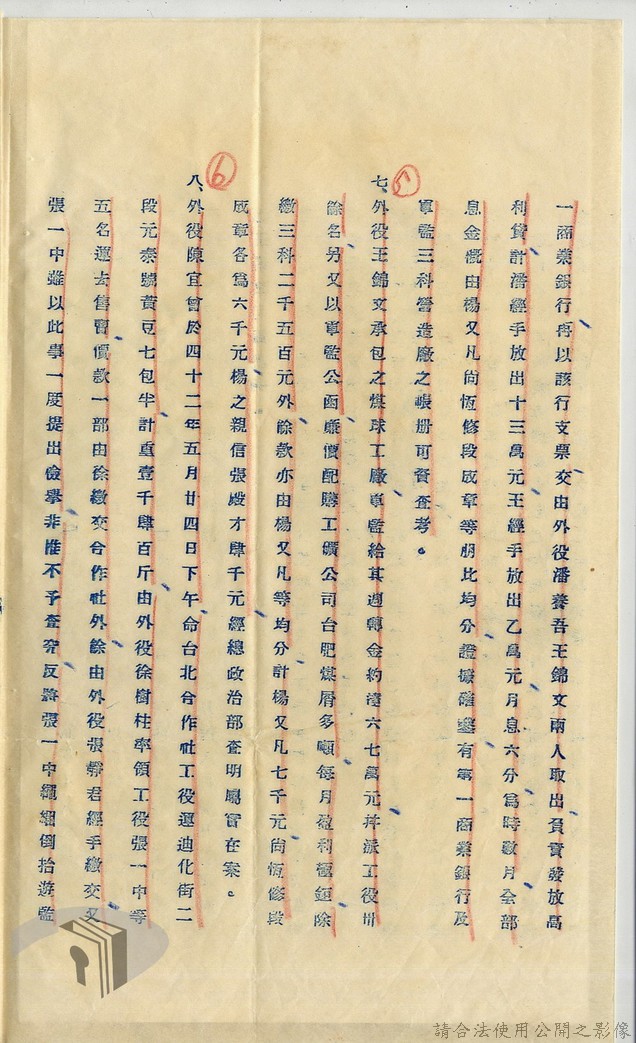 一商業銀行再以該行支票交由外役潘養吾王錦文兩人取出負責發放高
利貸計潘經手放出十三萬元王經手放出乙萬元月息六分為時數月全部
息金概由楊又凡尚恆修段成章等朋比均分證據確鑿有第一商業銀行及
軍監三科營造廠之帳册可資查考。
5
七、外役王錦文承包之煤球工廠軍監給其週轉金約達六七萬元并派工役卅
餘名另又以軍監公函廉價配購工礦公司台肥煤屑多噸每月盈利極鉅除
繳三科二千五百元外餘款亦由楊又凡等均分計楊又凡七千元尚恆修段
成章各為六千元楊之親信張殿才肆千元經總政治部查明屬實在案。
6
八、外役陳宜曾於四十二年五月廿四日下午命台北合作社工役運迪化街二
段元泰號黃豆七包半計重壹千肆百斤由外役徐樹柱率領工役張一中等
五名運去售賣價款一部由徐繳交合作社外餘由外役張靜君經手繳交又
張一中雖以此事一度提出檢舉非惟不予查究反將張一中綑綑倒抬遊監
請合法使用公開之影像